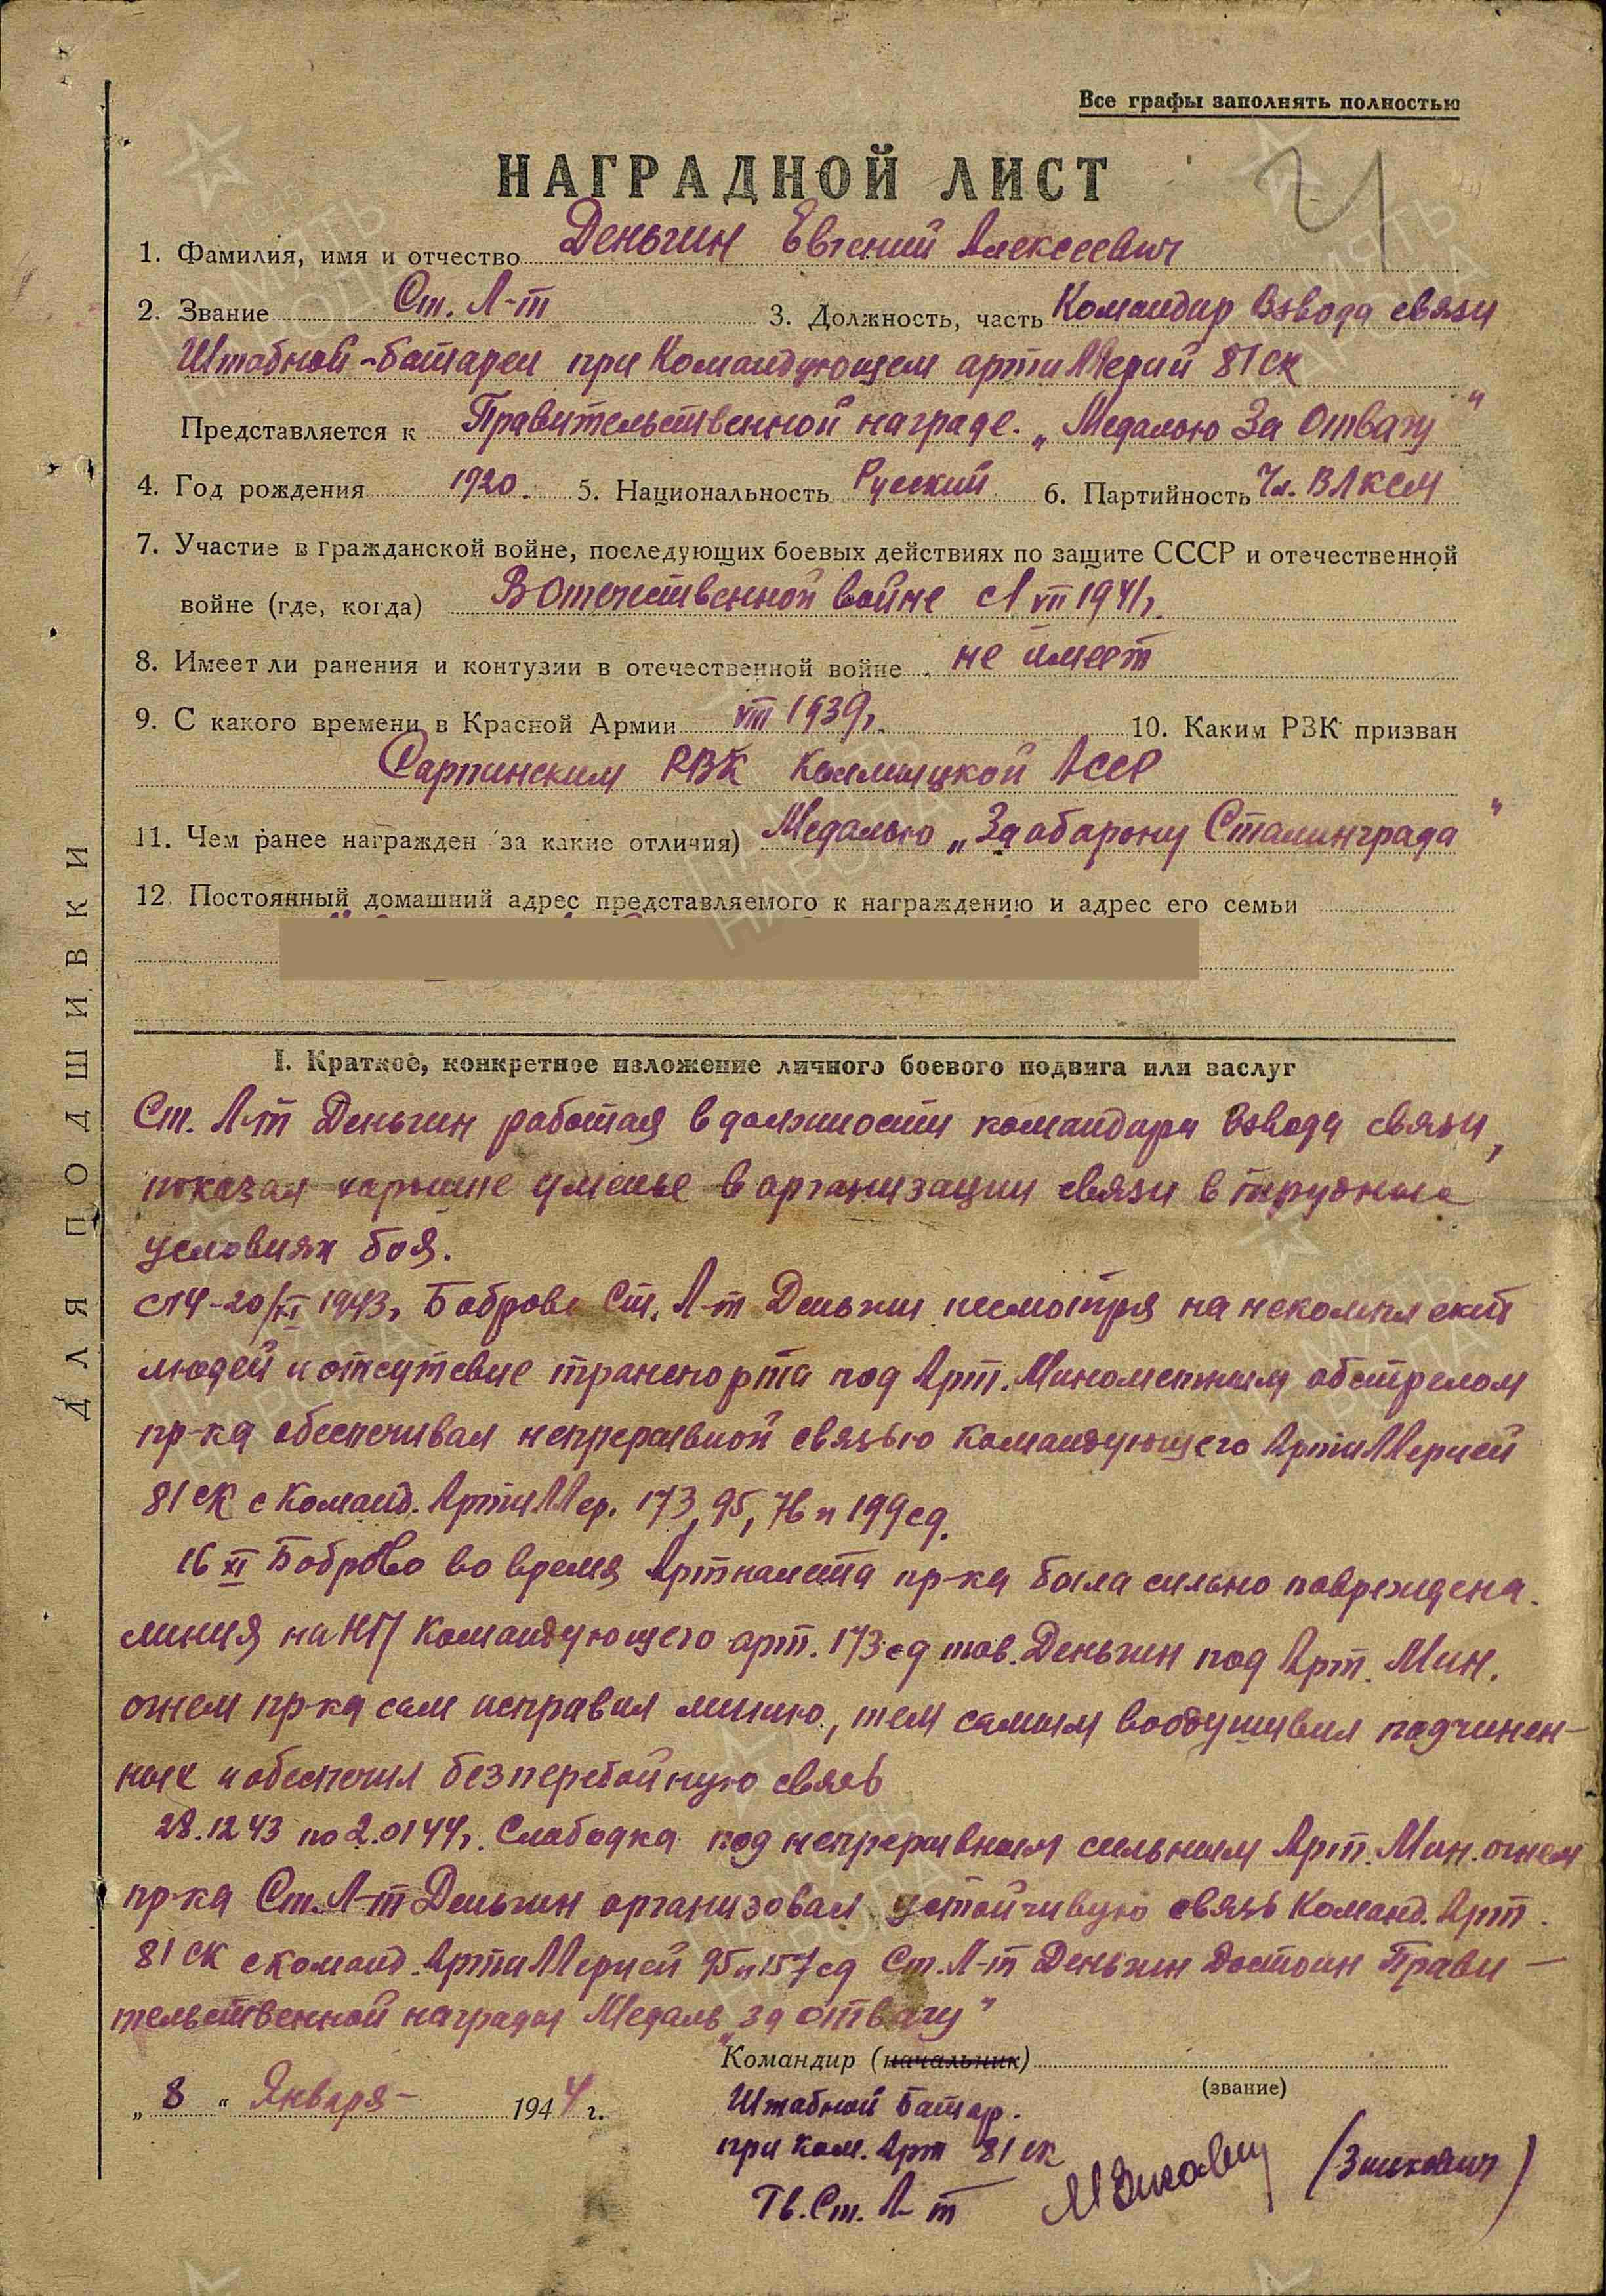 Все графы заполнять полностью
21
НАГРАДНОЙ ЛИСТ
1. Фамилия, имя и отчество Деньгин Евгений Алексеевич
2. Звание Ст. Л-т 3. Должность, часть Командир взвода связи
Штабной-батареи при Командующем артиллерий 81 ск
Представляется к Правительственной награде. „Медалью За Отвагу"
4. Год рождения 1920. 5. Национальность Русский 6. Партийность Чл. ВЛКСМ
7. Участие в гражданской войне, последующих боевых действиях по защите СССР и отечественной
войне (где, когда) В Отечественной войне с 1 VII 1941г.
8. Имеет ли ранения и контузии в отечественной войне не имеет
9. С какого времени в Красной Армии VIII 1939г. 10. Каким РВК призван
Сарпинским РВК Калмыцкой АССР
11. Чем ранее награжден за какие отличия) Медалью „За оборону Сталинграда"
12. Постоянный домашний адрес представляемого к награждению и адрес его семьи
I. Краткое, конкретное изложение личного боевого подвига или заслуг
Ст. Л-т Деньгин работая в должности командира взвода связи,
показал хорошие уменье в организации связи в трудных
условиях боя.
с 14-20/XI 1943г. Боброво Ст. Л-т Деньгин несмотря на некомплект
людей и отсутсвие транспорта под Арт. Минометным обстрелом
пр-ка обеспечивал непрерывной связью Командующего Артиллерией
81 СК с Команд. Артиллер. 173, 95, 76 и 199 сд.
16 XI Боброво во время Артналета пр-ка была сильно повреждена
линия на НП Командующего арт. 173 сд тов. Деньгин под Арт. Мин.
огнем пр-ка сам исправил линию, тем самым воодушивил подчинен-
ных и обеспечил безперебойную связь
28.12 43 по 2.01 44г. Слободка под непрерывным сильным Арт. Мин. огнем
пр-ка Ст. Л-т Деньгин организовал устойчивую связь Команд. Арт.
81 СК с команд. Артиллерией 95 и 157 сд Ст. Л-т Деньгин Достоин Прави-
тельственной награды Медаль „За отвагу"
Командир (начальник)
(звание)
„8" Января 1944 г.
Штабной Батар.
при Ком. Арт 81 ск
Гв. Ст. Л-т
ДЛЯ ПОДШИВКИ
ПАМЯТЬ НАРОДА